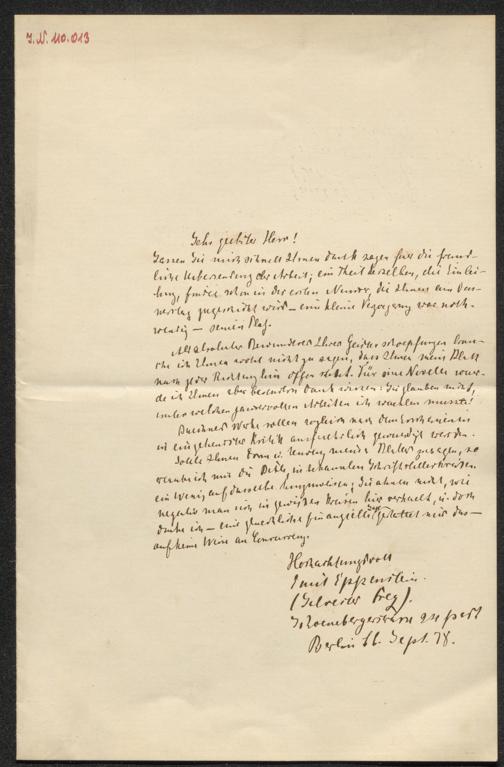 J.N. 110.013
Sehr geehrter Herr!
Lassen Sie mich schnell Ihnen Dank sagen für die freund-
liche Uebersendung der Arbeit; ein Theil derselben, die Einlei-
tung, findet schon in der ersten Nummer, die Ihnen am Don-
nerstag zugeschickt wird – eine kleine Verzögerung war noth-
wendig – seinen Platz.
Als absoluter Bewunderer Ihres Geistes brau-
che ich Ihnen wohl nicht zu sagen, dass Ihnen mein Blatt
nach jeder Richtung hin offen steht. Für eine Novelle wür-
de ich Ihnen aber besonders Dank wissen: Sie glauben nicht,
unter welchen Arbeiten ich wählen musste!
Werke sollen sogleich nach dem Erscheinen in
eingehender Kritik ausführlich gewürdigt werden.
Sollte Ihnen Form u. meines Blattes zusagen, so
mir die Bitte, in bekannten Schriftstellerkreisen
ein wenig auf dasselbe hinzuweisen; Sie ahnen nicht, wie
negativ man sich in gewissen Kreisen hier verhaelt, u. doch
denke ich – eine glueckliche finanzielle gestattet mir das –
auf keine Weise an Concurrenz.
Hochachtungsvoll
Emil Eppenstein.
(Silvester Frey).
Schoenebergerstrasse
Berlin Sept. 78.